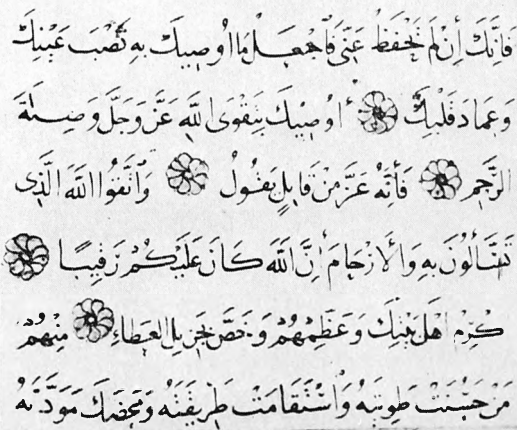 فَإِنَّكَ أِنْ لَمْ تَحْفَظْ عَنِّى فَاجْعَلْ مَا اُوصِيكَ بِهِ نُصْبَ عَيْنِكَ
وَعِمَادَ قَلْبِكَ أُوصِيْكَ بِتَقْوَى اللَّهِ عَزَّ وَجَلَّ وَصِلَةِ
الرَّحِمِ فَأَنَّهُ عَزَّ مِنْ قَايِلٍ يَقُولُ وَاتَّقُوا اللَّهَ الَّذِى
تَسَّأَلُونَ بِهِ وَالأَرْحَامَ أِنَّ اللَّهَ كَانَ عَلَيْكُمْ رَقِيبًا
كَرِّمْ أَهْلَ بَيْتِكَ وَعَظِّمْهُمْ وَخُصَّ بِجَزِيلِ العَطَاءِ مِنْهُمْ
مَنْ حَسُنَتْ طَوِيَّتُهُ وَاسْتَقَامَتْ طَرِيقَتُهُ وَمَحَضَكَ مَوَدَّتَهُ